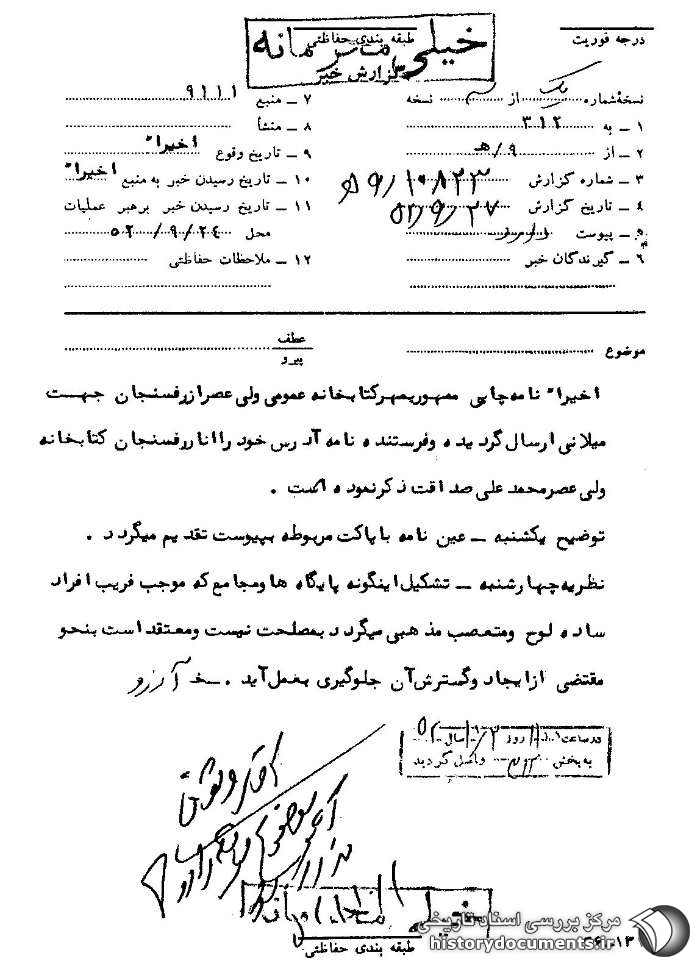 درجه فوریت
طبقه بندی حفاظتی
خیلی محرمانه
گزارش خبر
نسخهٔ شماره یک از نسخه
۱ ــ به ۳۱۲
۲ ــ از ۹/هـ
۳ ــ شماره گزارش ۱۰۸۲۳
۴ ــ تاریخ گزارش ۵۲/۹/۲۷
۵ ــ پیوست
۶ ــ گیرندگان خبر
۷ ــ منبع ۹۱۱۱
۸ ــ منشأ
۹ ــ تاریخ وقوع اخیراً
۱۰ ــ تاریخ رسیدن خبر به منبع اخیراً
۱۱ ــ تاریخ رسیدن خبر برهبر عملیات
محل ۵۲/۹/۲۴
۱۲ ــ ملاحظات حفاظتی
موضوع
عطف
پیرو
اخیراً نامه چاپی ممهور بمهر کتابخانه عمومی ولی عصر از رفسنجان جهت
میلانی ارسال گردیده و فرستنده نامه آدرس خود را انار رفسنجان کتابخانه
ولی عصر محمد علی صداقت ذکر نموده است .
توضیح یکشنبه ــ عین نامه با پاکت مربوطه بپیوست تقدیم میگردد .
نظریه چهارشنبه ــ تشکیل اینگونه پایگاه ها و مجامع که موجب فریب افراد
ساده لوح و متعصب مذهبی میگردد بمصلحت نیست و معتقد است بنحو
مقتضی از ایجاد و گسترش آن جلوگیری بعمل آید . ــ آرزو
در ساعت روز سال ۵۲
به بخش ۳۱۲ واصل گردید
آقای وثوق
طبقه بندی حفاظتی
مرکز بررسی اسناد تاریخی
historydocuments.ir